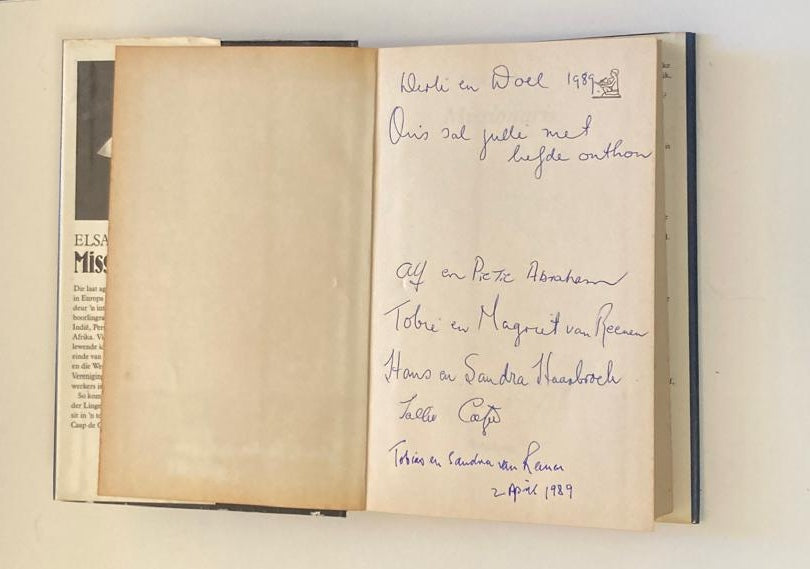 en Doel 1989
Ons sal julle met
liefde onthou
Alf en Pietie Abrahams
Tobie en Magriet van Reenen
Hans en Sandra Haasbroek
Coetzee
Tobias en Sandra van Reenen
2 April 1989
ELSA
Miss
Die laat ag
in Europa
deur 'n int
hoorlingra
Indië, Pers
Afrika. Vi
lewende k
einde van
en die We
Vereniging
werkers in
So kom
der Linge
sit in 'n to
Caap de G